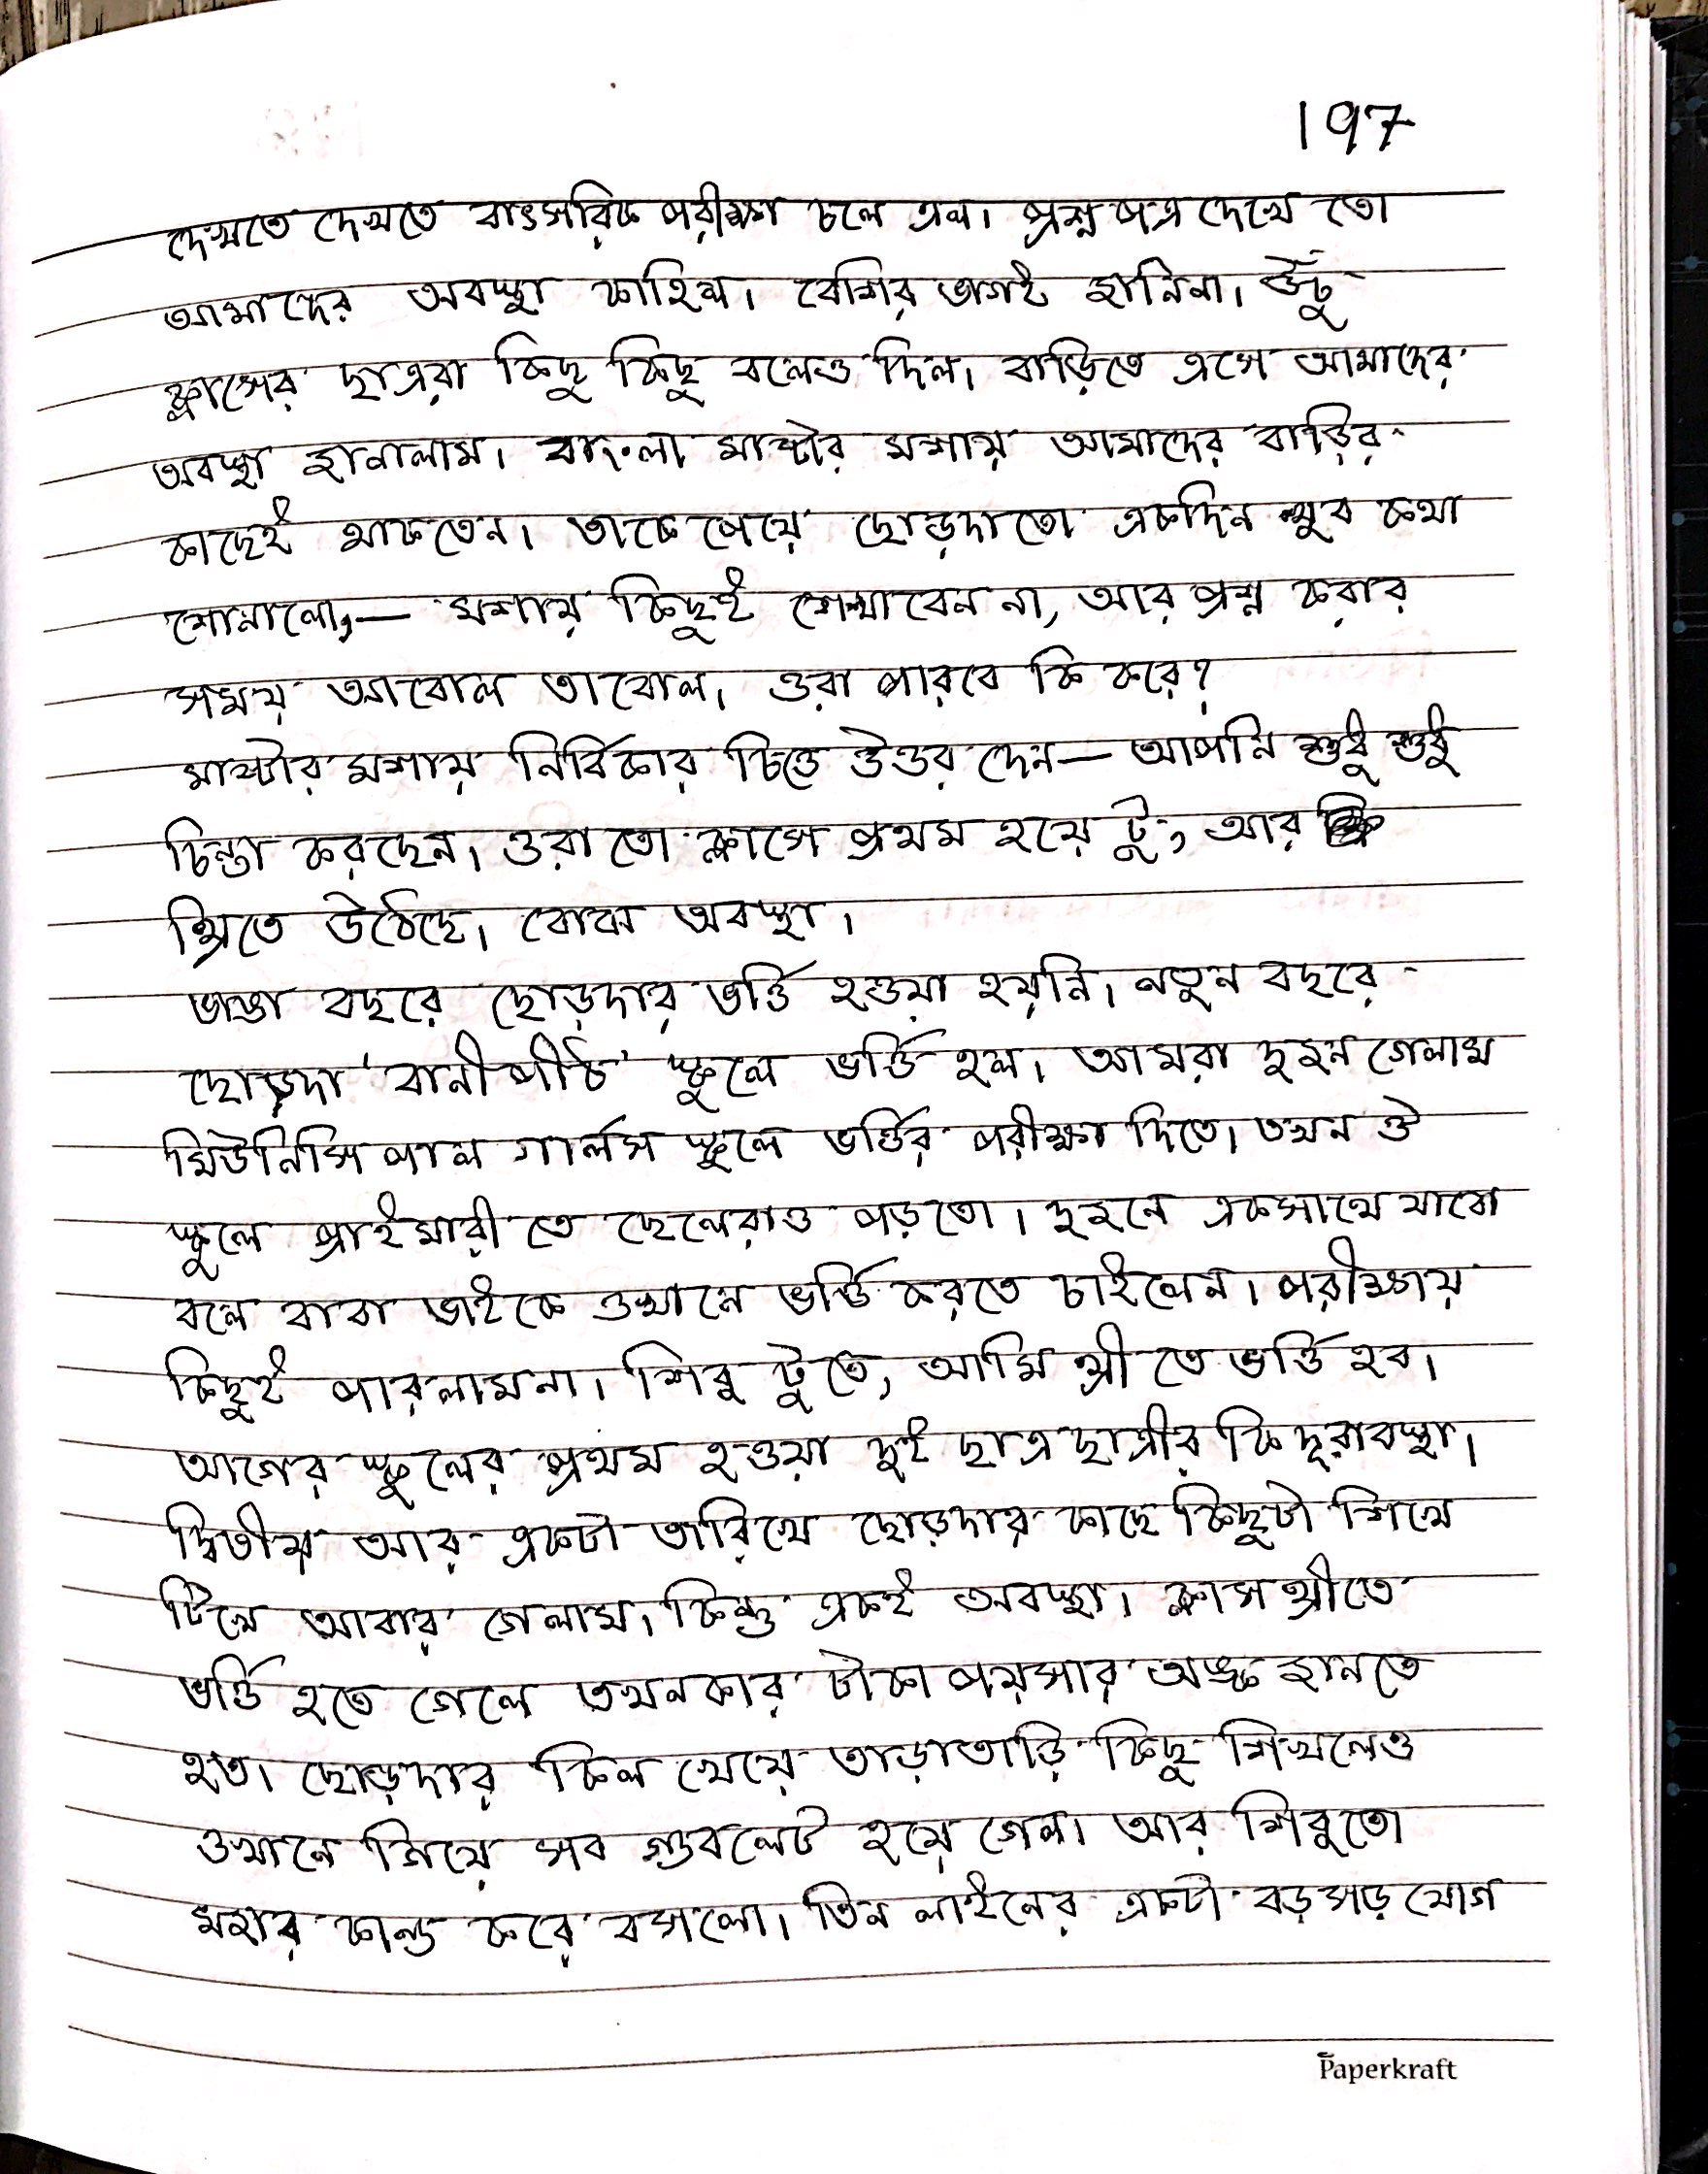 197
দেখতে দেখতে বাৎসরিক পরীক্ষা চলে এল। প্রশ্ন পত্র দেখে তো
আমাদের অবস্থা কাহিল। বেশির ভাগই জানিনা। উঁচু
ক্লাসের ছাত্ররা কিছু কিছু বলেও দিল। বাড়িতে এসে আমাদের
অবস্থা জানালাম। বাংলা মাষ্টার মশায় আমাদের বাড়ির
কাছেই থাকতেন। তাকে পেয়ে ছোড়দাতো একদিন খুব কথা
শোনালো,— মশায় কিছুই শেখাবেন না, আর প্রশ্ন করার
সময় আবোল তাবোল। ওরা পারবে কি করে?
মাষ্টার মশায় নির্বিকার চিত্তে উত্তর দেন— আপনি শুধু শুধু
চিন্তা করছেন। ওরা তো ক্লাসে প্রথম হয়ে টু, আর
থ্রিতে উঠেছে। বোঝ অবস্থা।
ভাঙা বছরে ছোড়দার ভর্ত্তি হওয়া হয়নি। নতুন বছরে
ছোড়দা 'বানীপীঠ' স্কুলে ভর্ত্তি হল। আমরা দুজন গেলাম
মিউনিসিপাল গার্লস স্কুলে ভর্ত্তির পরীক্ষা দিতে। তখন ঐ
স্কুলে প্রাইমারী তে ছেলেরাও পড়তো। দুজনে একসাথে যাবো
বলে বাবা ভাইকে ওখানে ভর্ত্তি করতে চাইলেন। পরীক্ষায়
কিছুই পারলামনা। শিবু টুতে, আমি থ্রী তে ভর্ত্তি হব।
আগের স্কুলের প্রথম হওয়া দুই ছাত্র ছাত্রীর কি দূরাবস্থা।
দ্বিতীয় আর একটা তারিখে ছোড়দার কাছে কিছুটা শিখে
টিখে আবার গেলাম। কিন্তু একই অবস্থা। ক্লাস থ্রীতে
ভর্ত্তি হতে গেলে তখনকার টাকা পয়সার অঙ্ক জানতে
হত। ছোড়দার কিল খেয়ে তাড়াতাড়ি কিছু শিখলেও
ওখানে গিয়ে সব গুবলেট হয়ে গেল। আর শিবুতো
মজার কান্ড করে বসলো। তিন লাইনের একটা বড়সড় যোগ
Paperkraft